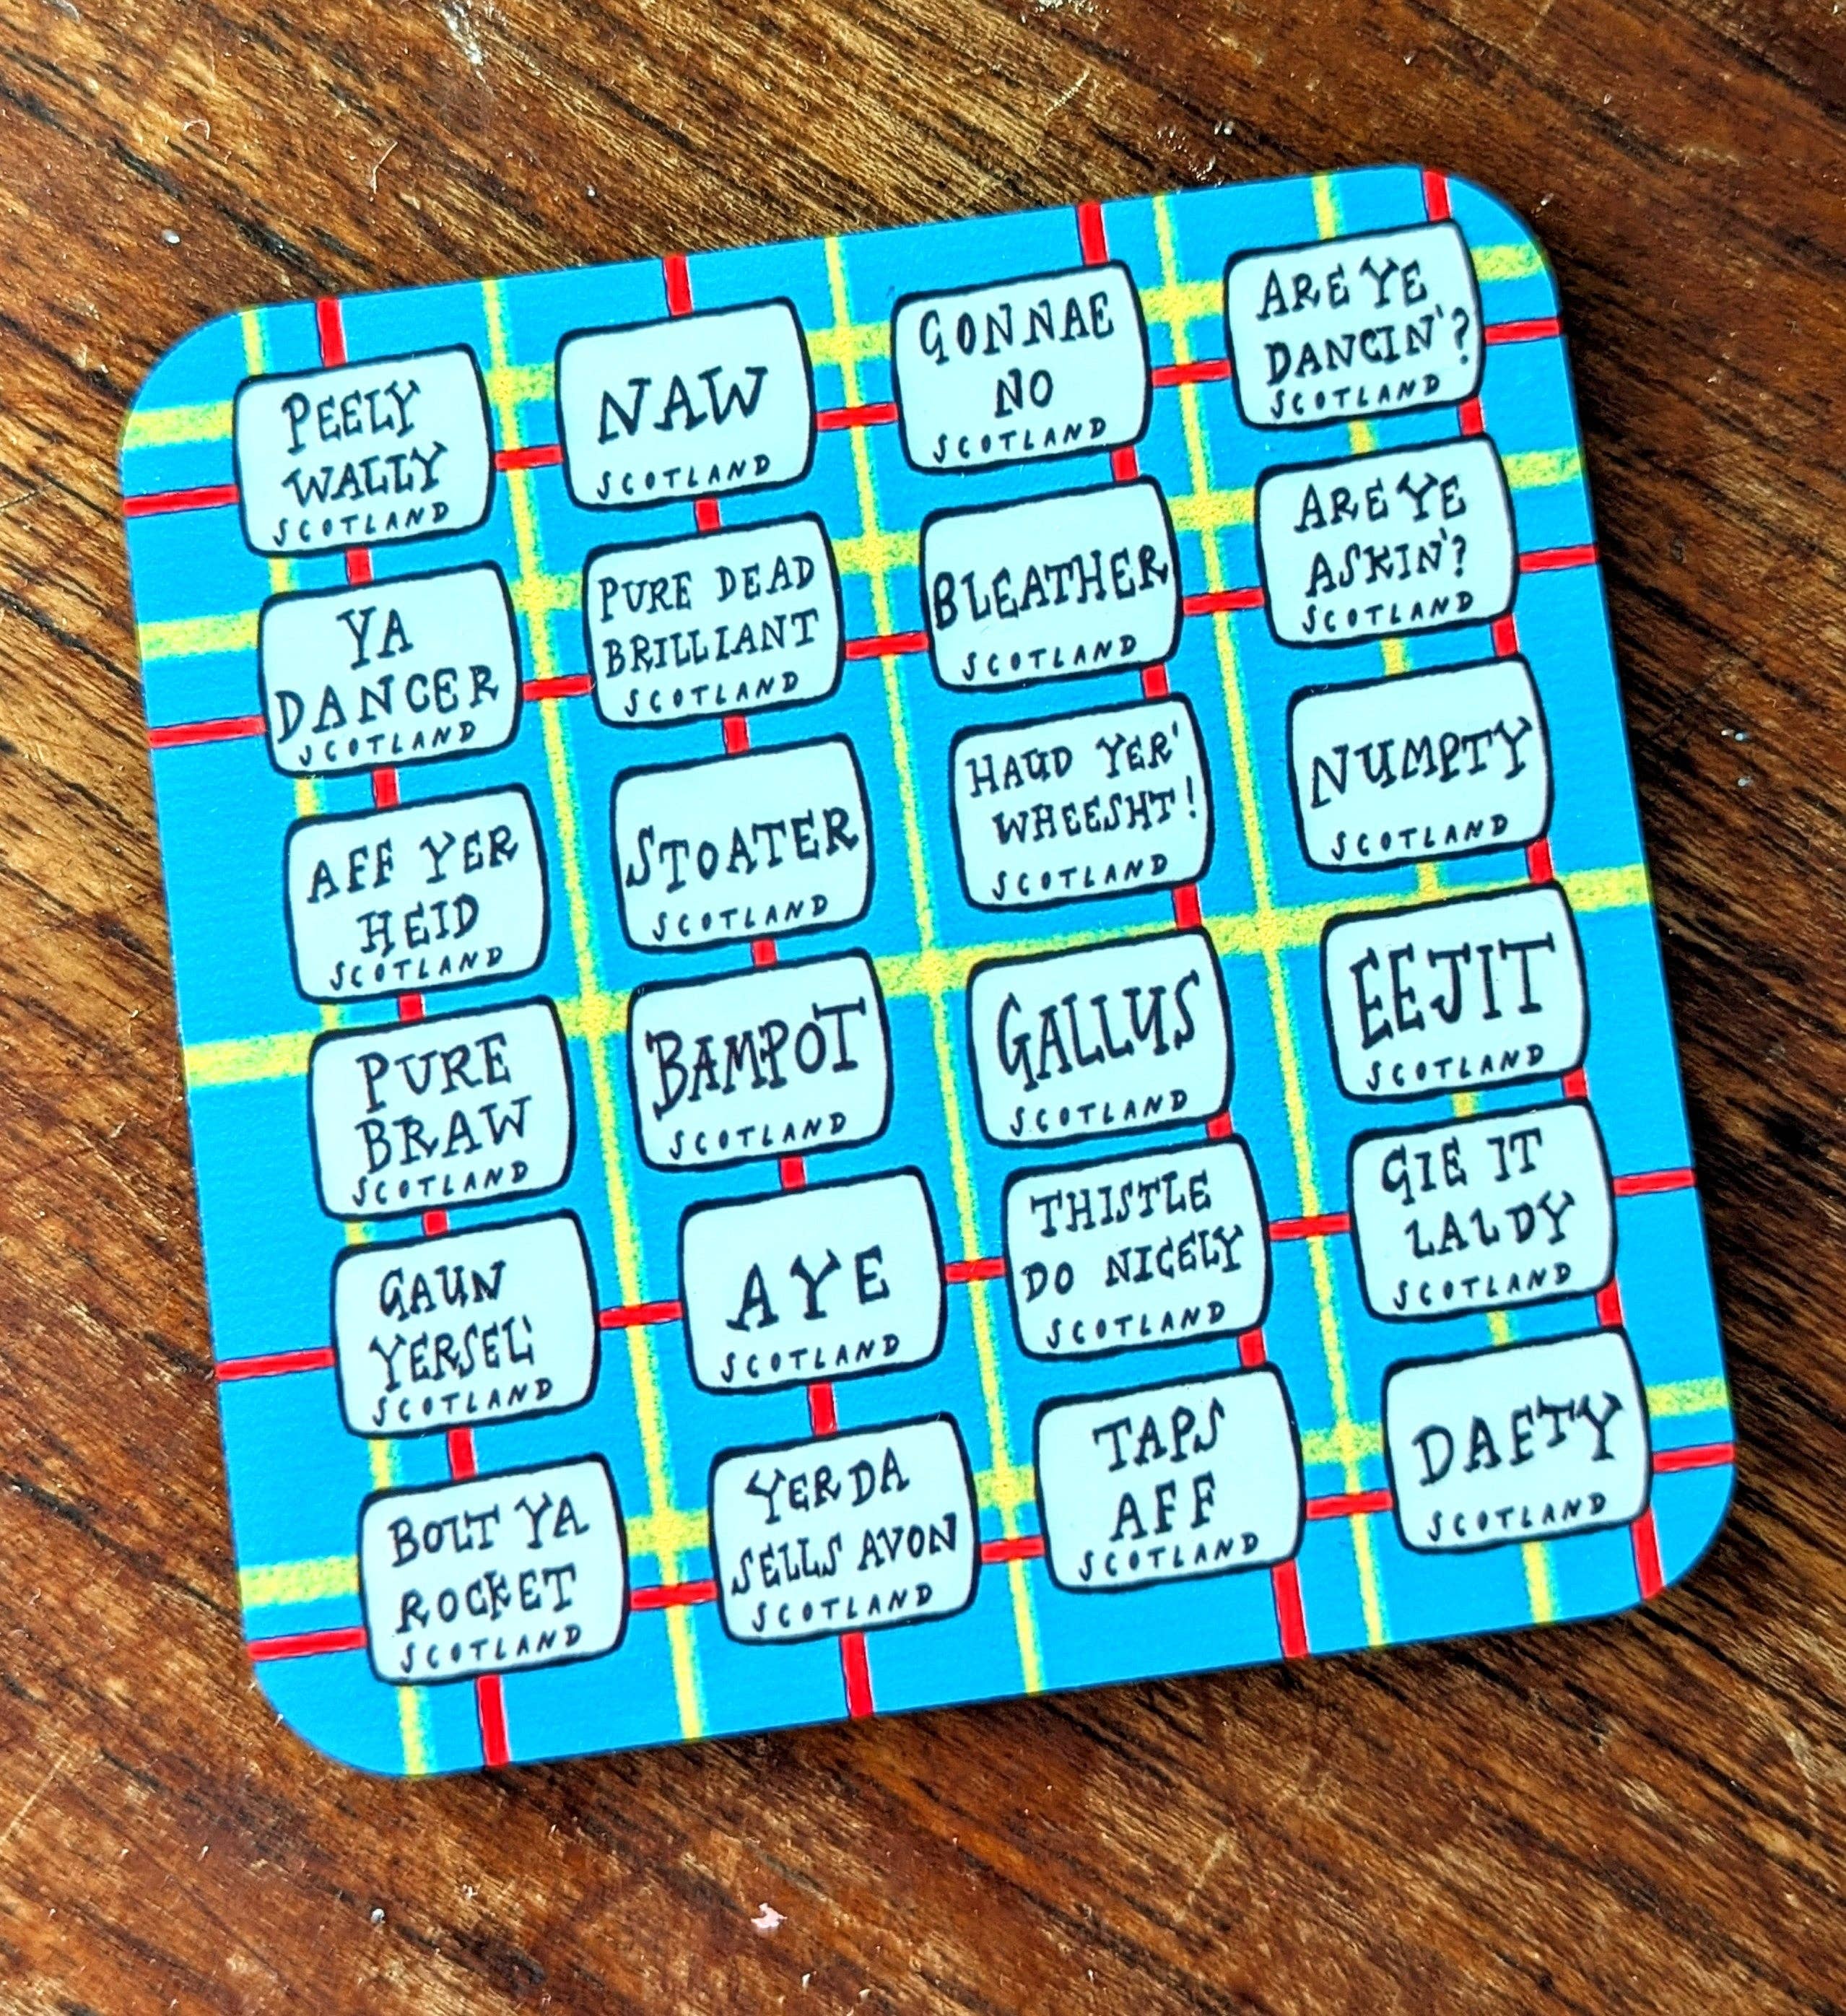 PEELY
WALLY
SCOTLAND
NAW
SCOTLAND
GONNAE
NO
SCOTLAND
ARE YE
DANCIN'?
SCOTLAND
YA
DANCER
SCOTLAND
PURE DEAD
BRILLIANT
SCOTLAND
BLEATHER
SCOTLAND
ARE YE
ASKIN'?
SCOTLAND
AFF YER
HEID
SCOTLAND
STOATER
SCOTLAND
HAUD YER'
WHEESHT!
SCOTLAND
NUMPTY
SCOTLAND
PURE
BRAW
SCOTLAND
BAMPOT
SCOTLAND
GALLUS
SCOTLAND
EEJIT
SCOTLAND
GAUN
YERSEL'
SCOTLAND
AYE
SCOTLAND
THISTLE
DO NICELY
SCOTLAND
GIE IT
LALDY
SCOTLAND
BOLT YA
ROCKET
SCOTLAND
YER DA
SELLS AVON
SCOTLAND
TAPS
AFF
SCOTLAND
DAFTY
SCOTLAND